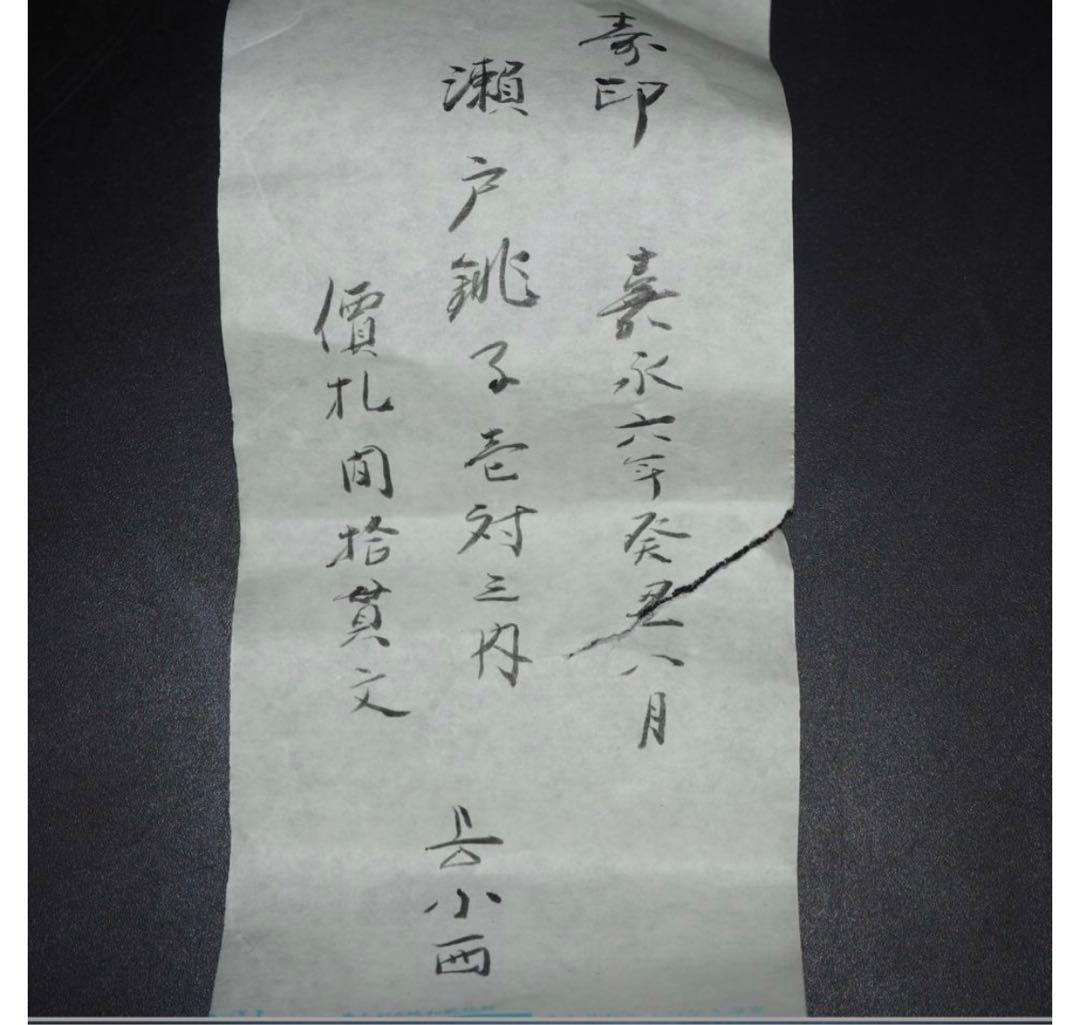 寿印 嘉永六年癸丑八月
瀬戸銚子壱対三内
價札間拾貫文
長小西